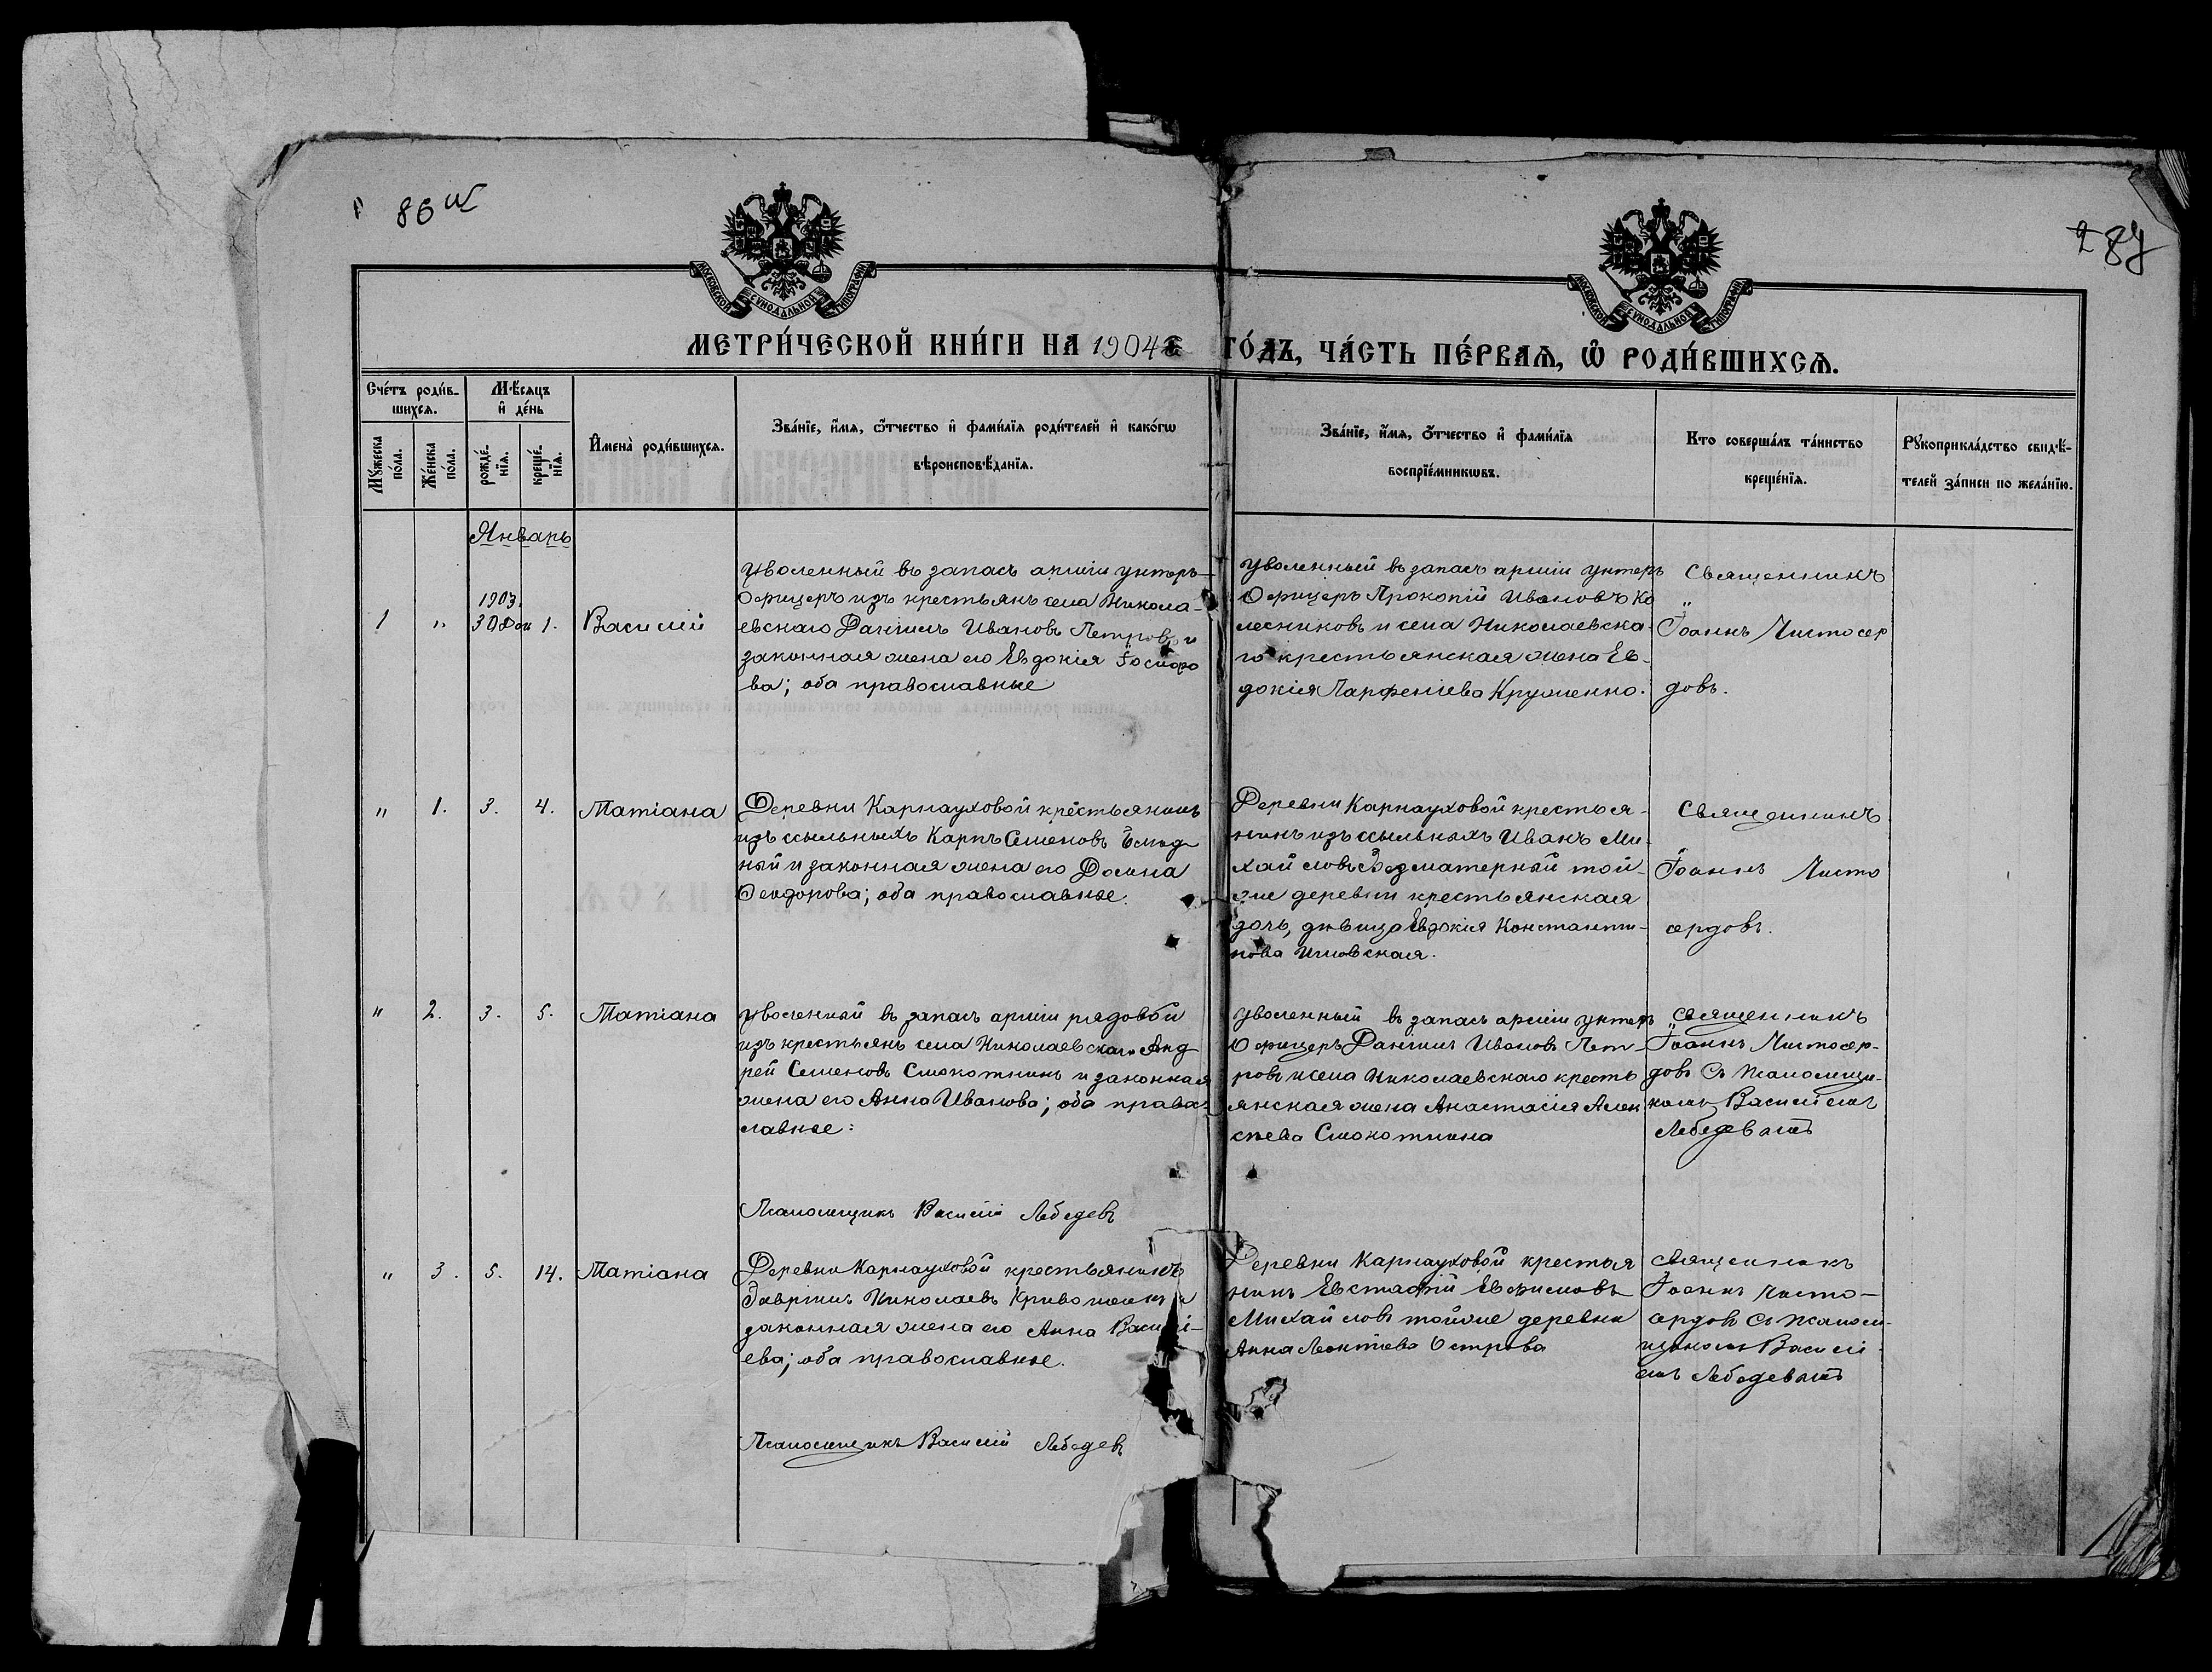 287
МОСКОВСКОЙ СУНОДАЛЬНОЙ ТИПОГРАФІИ
МОСКОВСКОЙ СУНОДАЛЬНОЙ ТИПОГРАФІИ
МЕТРИ́ЧЕСКОЙ КНИ́ГИ НА 1904 ГО́ДЪ, ЧА́СТЬ ПЕ́РВАѦ, Ѡ РОДИ́ВШИХСѦ.
Сче́тъ роди́в-
шихсѧ.
Мꙋ́жеска по́ла.
Же́нска по́ла.
Мѣ́сѧцъ
и҆ де́нь
рожде́-
нїѧ.
креще́-
нїѧ.
И҆мена̀ роди́вшихсѧ.
Зва́нїе, и҆́мѧ, ѻ҆́тчество и҆ фамі́лїѧ роди́телей и҆ како́гѡ
вѣроисповѣ́данїѧ.
Зва́нїе, и҆́мѧ, ѻ҆́тчество и҆ фамі́лїѧ
воспрїе́мникѡвъ.
Кто соверша́лъ та́инство
креще́нїѧ.
Рꙋкоприкла́дство свидѣ́-
телей за́писи по жела́нїю.
Январь
1 " 1903. 30 1. Василій
Уволенный въ запасъ арміи унтеръ-
Офицеръ изъ крестьянъ села Никола-
евскаго Даніилъ Ивановъ Петровъ и
законная жена его Евдокія
ва; оба православные
Уволенный въ запасъ арміи унтеръ
Офицеръ Прокопій Ивановъ Ко
лесниковъ и села Николаевска
го крестьянская жена Ев-
докія Парфеніева Круженко.
Священникъ
Іоаннъ Чистосер
довъ.
" 1. 3. 4. Татіана
Деревни Карнауховой крестьянинъ
изъ ссыльныхъ Карпъ Семеновъ
ный и законная жена его Домна
Ѳеодорова; оба православные.
Деревни Карнауховой крестья-
нинъ изъ ссыльныхъ Иванъ Ми-
хайловъ Безматерный той-
же деревни крестьянская
дочь, дѣвица Евдокія Константи-
нова
Священникъ
Іоаннъ Чисто
сердовъ.
" 2. 3. 5. Татіана
Уволенный въ запасъ арміи рядовой
изъ крестьянъ села Николаевскаго Анд
рей Семеновъ Смокотнинъ и законная
жена его Анна Иванова; оба право-
славные:
Псаломщикъ Василій Лебедевъ
Уволенный въ запасъ арміи унтеръ
Офицеръ Даніилъ Ивановъ Пет-
ровъ и села Николаевскаго кресть
янская жена Анастасія Алек
сѣева Смокотнина
Священникъ
Іоаннъ Чистосер-
довъ съ псаломщи-
комъ Василіемъ
Лебедевымъ
" 3. 5. 14. Татіана
Деревни Карнауховой крестьянинъ
Гавріилъ Николаевъ
законная жена его Анна Василі-
ева; оба православные.
Псаломщикъ Василій Лебедевъ
Деревни Карнауховой крестья
нинъ Евстафій Евфимовъ
Михайловъ тойже деревни
Анна Леонтіева Острова
Священникъ
Іоаннъ Чисто-
сердовъ съ псалом-
щикомъ Василі
емъ Лебедевымъ